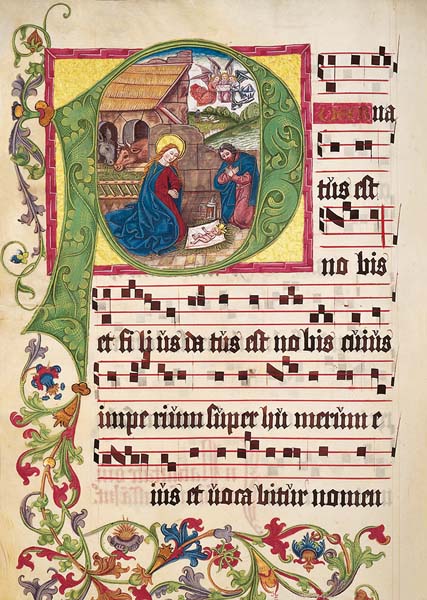 Puer na
tus est
no bis
et fi li us da tus est no bis cuius
impe rium super hu merum e
ius et voca bitur nomen